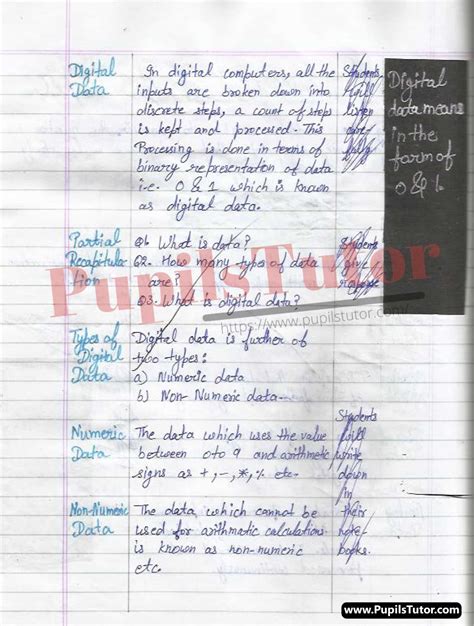 Digital
Data
In digital computers, all the
inputs are broken down into
discrete steps, a count of steps
is kept and processed. This
Processing is done in terms of
binary representation of data
i.e. 0 & 1 which is known
as digital data.
Students
will
listen
Digital
data means
in the
form of
0 & 1.
Partial
Recapitula-
tion
Q1. What is data?
Q2. How many types of data
are?
Q3. What is digital data?
Students
give
response
PupilsTutor
https://www.pupilstutor.com/
Types of
Digital
Data
Digital data is further of
two types:
a) Numeric data
b) Non-Numeric data.
Numeric
Data
The data which uses the value
between 0 to 9 and arithmetic
signs as +, -, *, % etc.
Non-Numeric
Data
The data, which cannot be
used for arithmetic calculations
is known as non-numeric
etc.
Students
will
write
down
in
their
note-
books.
www.PupilsTutor.com